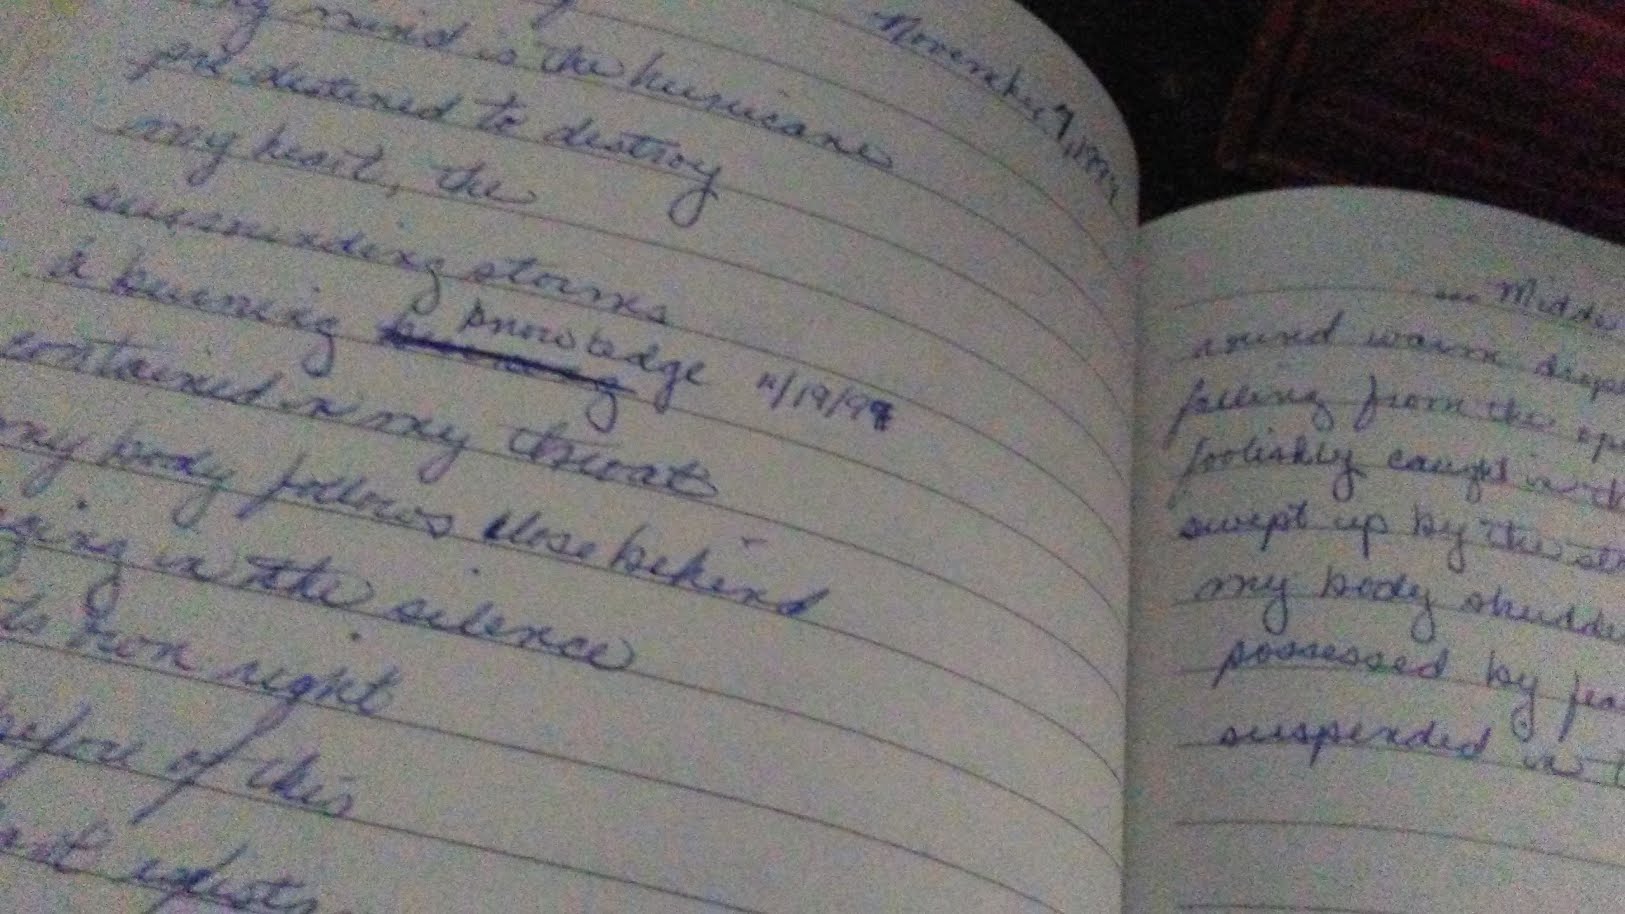 November 7, 1999
my mind is the huricane
pre destened to destroy
my heart, the
surrounding storms
a burning knowledge 11/19/99
contained in my throat
my body follows close behind
in the silence
its own right
before of this
... Middle
round warm drops
falling from the
foolishly caught in th
swept up by the st
my body shudde
possessed by fea
suspended in t